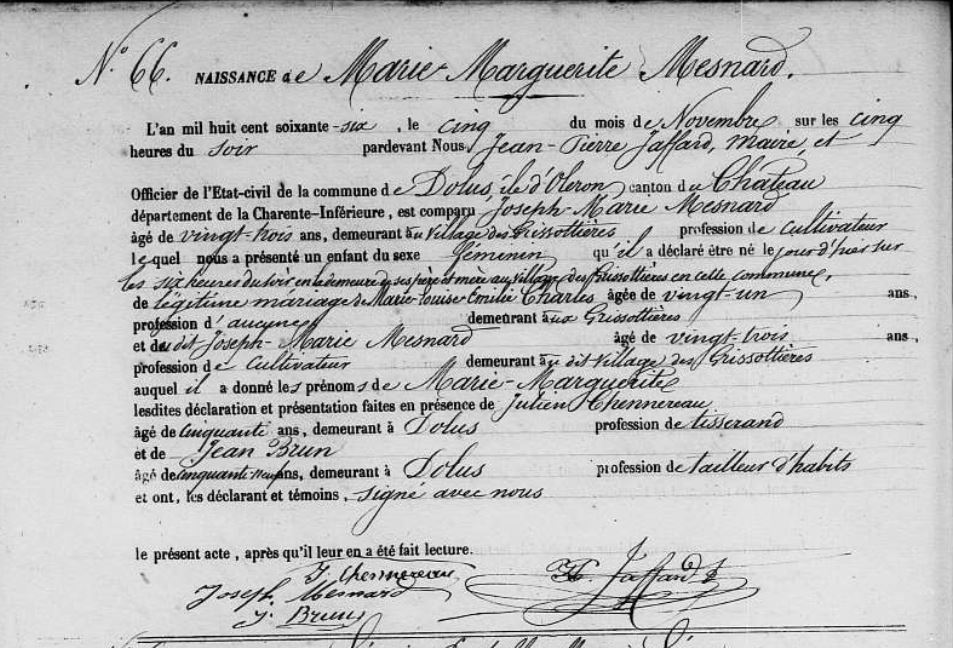 N.° 66. NAISSANCE de Marie-Marguerite Mesnard.
L'an mil huit cent soixante-six, le cinq du mois de Novembre sur les cinq
heures du soir pardevant Nous Jean-Pierre Jaffard, maire et
Officier de l'Etat-civil de la commune de Dolus, île d'Oleron canton du Château
département de la Charente-Inférieure, est comparu Joseph-Marie Mesnard
âgé de vingt-trois ans, demeurant au village des Grissottières profession de cultivateur
lequel nous a présenté un enfant du sexe féminin qu'il a déclaré être né le jour d'hier sur
les six heures du soir en la demeure de ses père et mère au village des Grissottières en cette commune,
de légitime mariage de Marie-Louise-Emilie Charles âgée de vingt-un ans,
profession d'aucune demeurant aux Grissottières
et dudit Joseph-Marie Mesnard âgé de vingt-trois ans,
profession de Cultivateur demeurant au dit village des Grissottières
auquel il a donné les prénoms de Marie-Marguerite
lesdites déclaration et présentation faites en présence de Julien Chennereau
âgé de Cinquante ans, demeurant à Dolus profession de tisserand
et de Jean Brun
âgé de cinquante-neuf ans, demeurant à Dolus profession de tailleur d'habits
et ont, les déclarant et témoins, signé avec nous
le présent acte, après qu'il leur en a été fait lecture.
J. Chennereau Jaffard
Joseph Mesnard
J. Brun